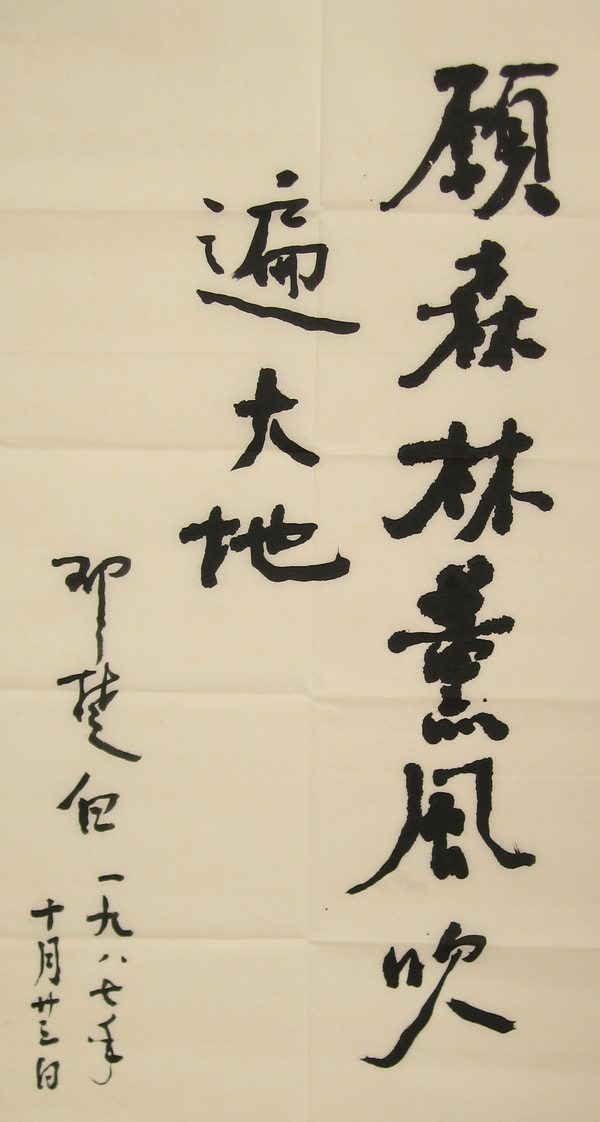 願森林薰風吹
遍大地
邓楚白
一九八七年
十月廿三日